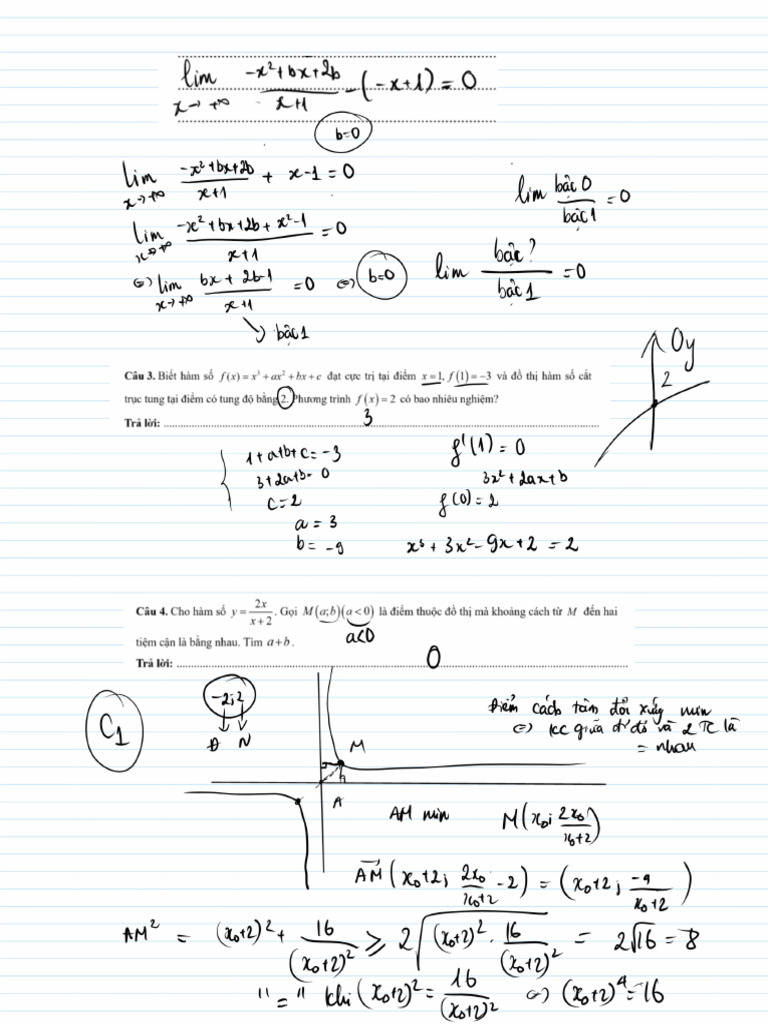 lim x→+∞ (-x²+bx+2b)/(x+1) - (-x+1) = 0
b=0
lim x→+∞ (-x²+bx+2b)/(x+1) + x-1 = 0
lim bậc 0/bậc 1 = 0
lim x→+∞ (-x²+bx+2b+x²-1)/(x+1) = 0
lim bậc ?/bậc 1 = 0
⇔ lim x→+∞ (bx+2b-1)/(x+1) = 0 ⇔ b=0
↘ bậc 1
Oy
2
Câu 3. Biết hàm số f(x) = x³ + ax² + bx + c đạt cực trị tại điểm x = 1, f(1) = -3 và đồ thị hàm số cắt
trục tung tại điểm có tung độ bằng 2. Phương trình f(x) = 2 có bao nhiêu nghiệm?
Trả lời: 3
1+a+b+c=-3
3+2a+b=0
c=2
a=3
b=-9
f'(1)=0
3x²+2ax+b
f(0)=2
x³+3x²-9x+2=2
Câu 4. Cho hàm số y = 2x/(x+2). Gọi M(a;b)(a<0) là điểm thuộc đồ thị mà khoảng cách từ M đến hai
a<0
tiệm cận là bằng nhau. Tìm a+b.
Trả lời: 0
C1
-2; 2
Đ N
Điểm cách tâm đối xứng min
⇔ KC giữa đ' đó và 2 TC là
= nhau
M
A
AM min
M(x₀; 2x₀/(x₀+2))
AM(x₀+2; 2x₀/(x₀+2) -2) = (x₀+2; -4/(x₀+2))
AM² = (x₀+2)² + 16/(x₀+2)² ≥ 2√((x₀+2)² . 16/(x₀+2)²) = 2√16 = 8
"=" khi (x₀+2)² = 16/(x₀+2)² ⇔ (x₀+2)⁴ = 16